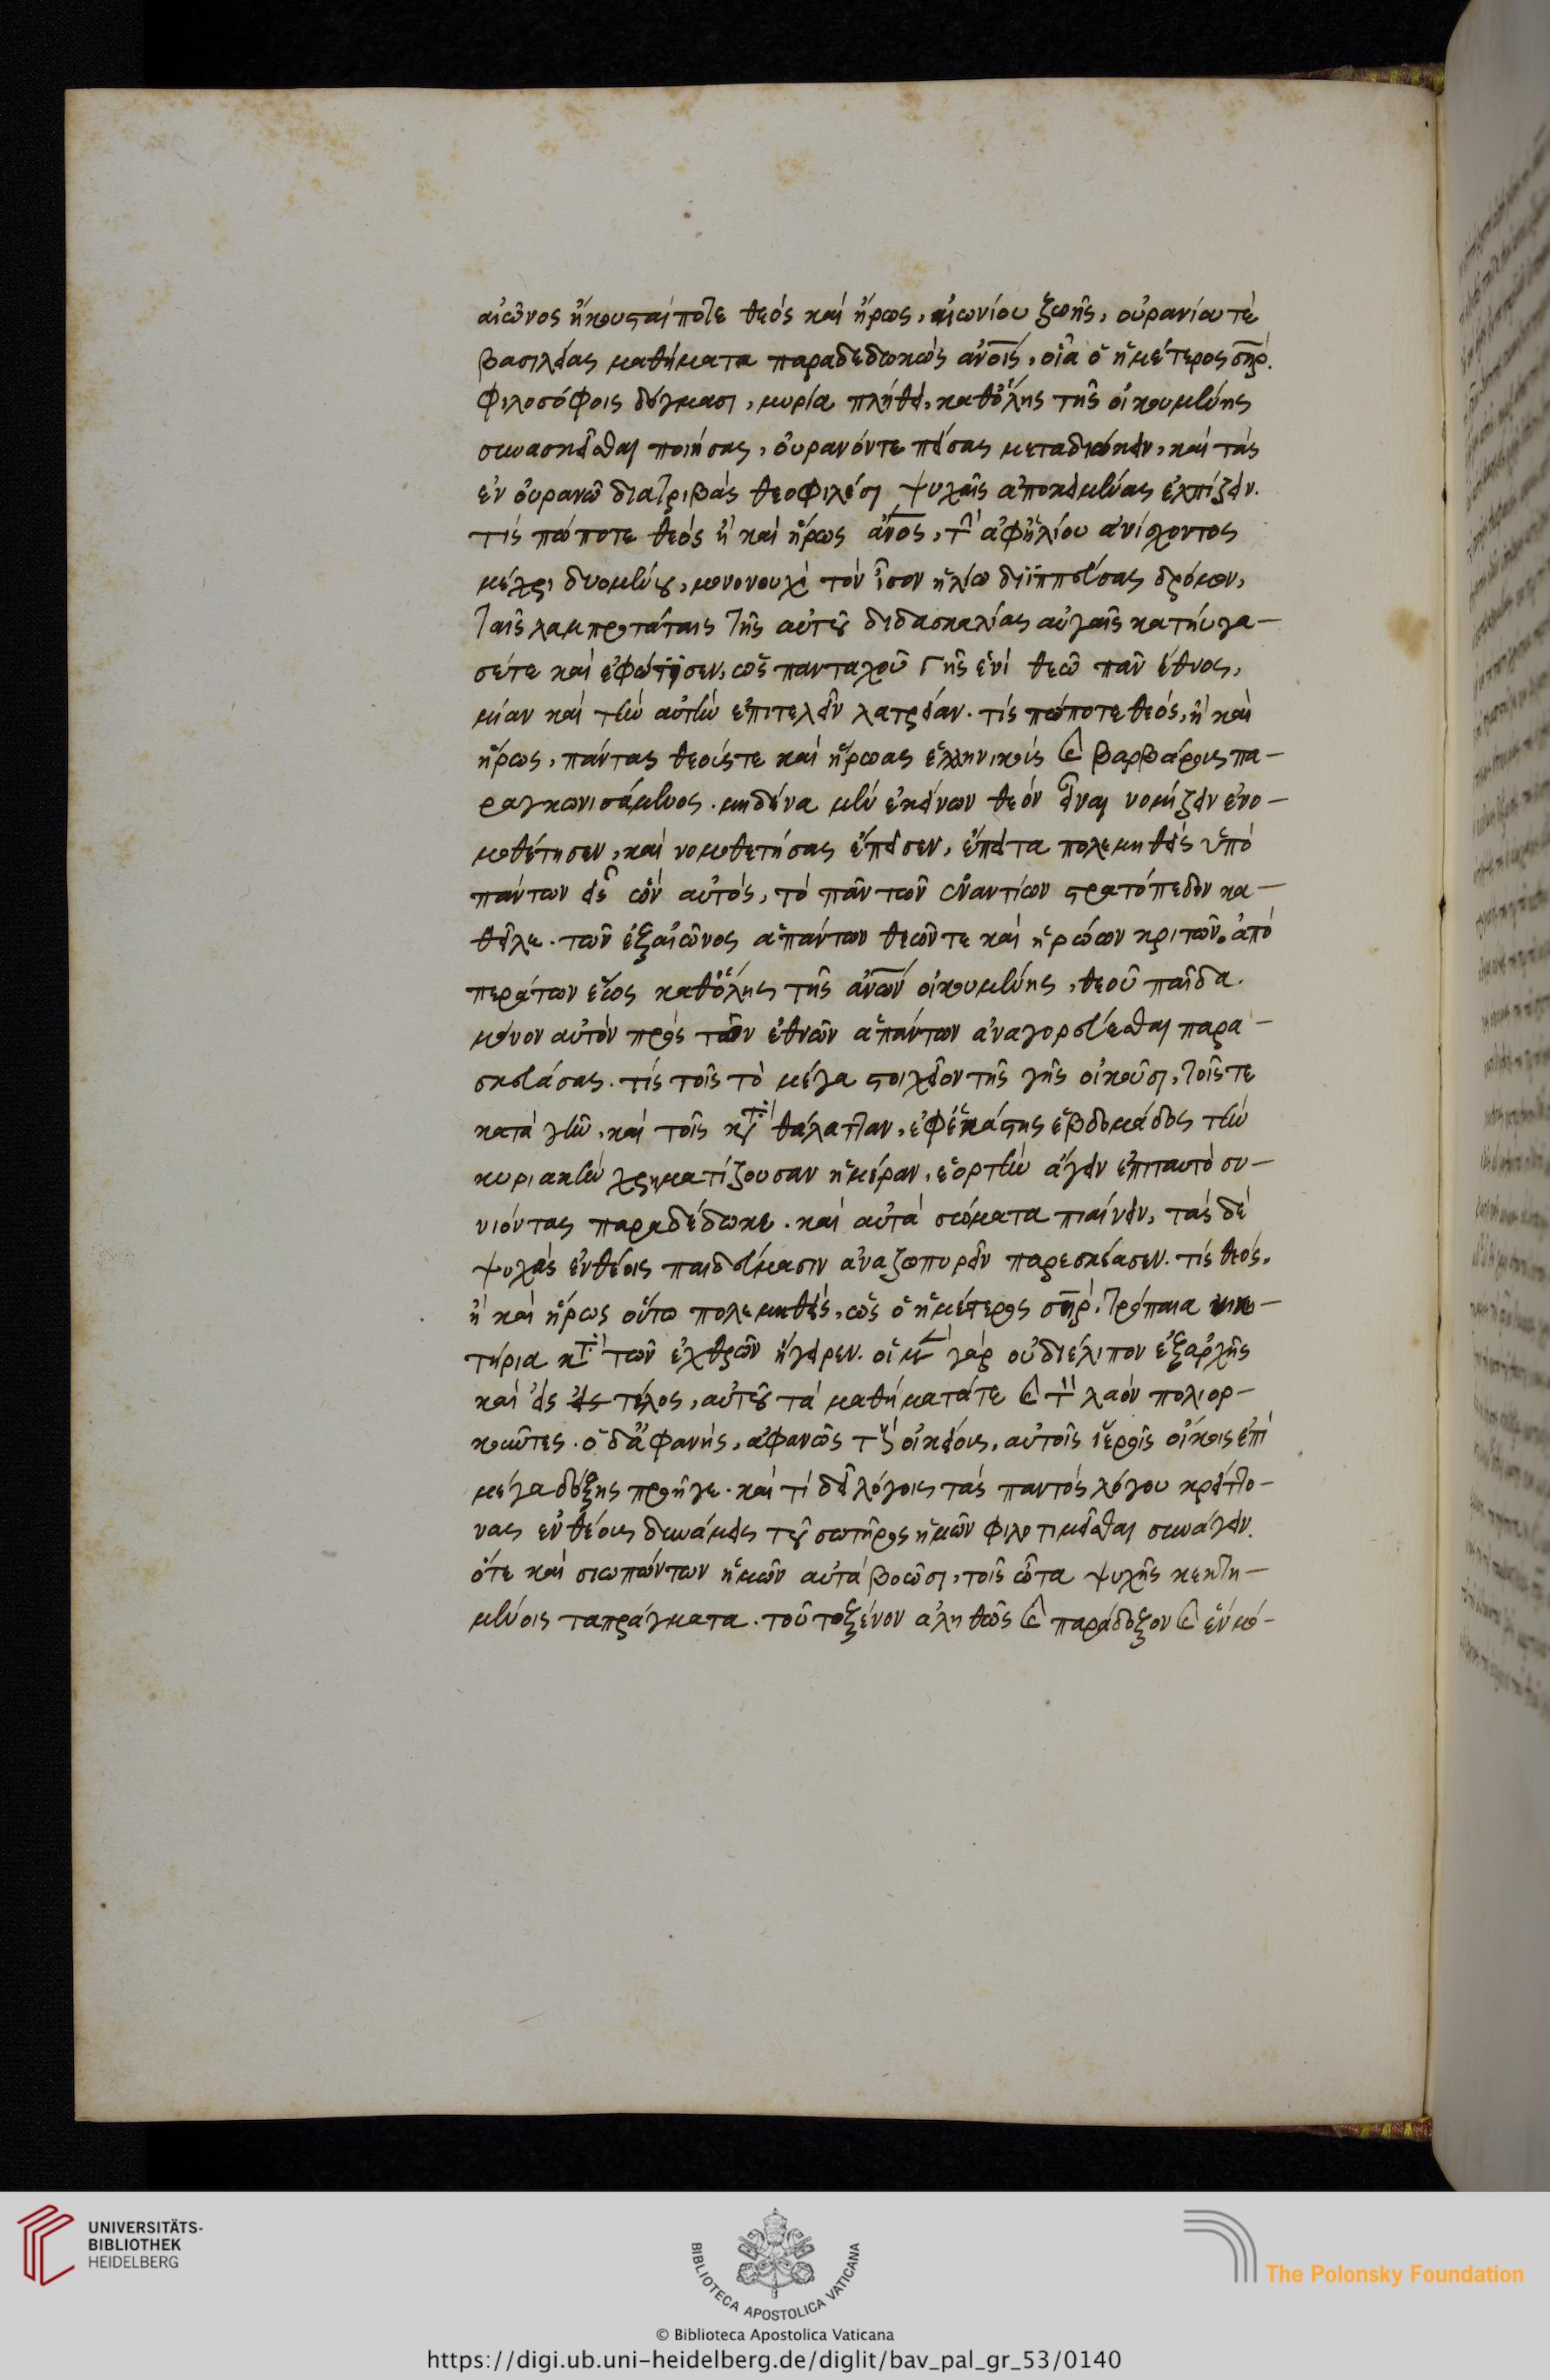 αἰῶνος ἤκουσταί ποτε θεός καὶ ἥρως, αἰωνίου ζωῆς, οὐρανίου τὲ
βασιλείας μαθήματα παραδεδωκὼς ἀνοις, οἷα ὁ ἡμέτερος σηρ.
φιλοσόφοις δόγμασι, μυρία πλήθει, καθόλης τῆς οἰκουμένης
συνασκεῖσθαι ποιήσας, οὐρανόντε πείσας μεταδιώκειν, καὶ τὰς
ἐν οὐρανῶ διατριβὰς θεοφιλέσι ψυχαῖς ἀποκειμένας ἐλπίζειν.
τίς πώποτε θεός ἢ καὶ ἥρως ἀνος, τ ἀφηλίου ἀνίσχοντος
μέχρι δυομένου, μονονουχὶ τὸν ἶσον ἡλίω διϊππεύσας δρόμον,
ταῖς λαμπροτάταις τῆς αὐτοῦ διδασκαλίας αὐγαῖς κατήυγα-
σέτε καὶ ἐφώτισεν, ὡς πανταχοῦ γῆς ἑνὶ θεῶ πᾶν ἔθνος,
μίαν καὶ τὴν αὐτὴν ἐπιτελεῖν λατρείαν. τίς πώποτε θεός, ἢ καὶ
ἥρως, πάντας θεούς τε καὶ ἥρωας ἑλληνικοὺς καὶ βαρβάρους πα-
ραγκωνισάμενος. μηδένα μὲν ἐκείνων θεόν εἶναι νομίζειν ἐνο-
μοθέτησεν, καὶ νομοθετήσας ἔπεισεν, ἔπειτα πολεμηθεὶς ὑπὸ
πάντων εἷς ὢν αὐτός, τὸ πᾶν τῶν ἐναντίων στρατόπεδον κα-
θεῖλε. τῶν ἐξαἰῶνος ἁπάντων θεῶν τε καὶ ἡρώων κριτῶν. ἀπὸ
περάτων ἕως καθόλης τῆς ἀνων οἰκουμένης, θεοῦ παῖδα.
μόνον αὐτὸν πρὸς τῶν ἐθνῶν ἁπάντων ἀναγορεύεσθαι παρα-
σκευάσας. τίς τοῖς τὸ μέγα στοιχεῖον τῆς γῆς οἰκοῦσι, τοῖς τε
κατὰ γῆν, καὶ τοῖς κατὰ θάλατταν, ἐφ' ἑκάστης ἑβδομάδος τὴν
κυριακὴν χρηματίζουσαν ἡμέραν, ἑορτὴν ἄγειν ἐπιταυτὸ συ-
νιόντας παραδέδωκε. καὶ αὐτὰ σώματα πιαίνειν, τὰς δὲ
ψυχὰς ἐνθέοις παιδεύμασιν ἀναζωπυρεῖν παρεσκέασεν. τίς θεός,
ἢ καὶ ἥρως οὕτω πολεμηθεὶς, ὡς ὁ ἡμέτερος σηρ, τρόπαια νικη-
τήρια κατὰ τῶν ἐχθρῶν ἤγειρεν. οἱ μὲν γὰρ οὐδιέλιπον ἐξἀρχῆς
καὶ εἰς τέλος, αὐτοῦ τὰ μαθήματάτε καὶ τὸν λαὸν πολιορ-
κοῦντες. ὁ δἀφανὴς, ἀφανῶς τοὺς οἰκείους, αὐτοῖς ἱεροῖς οἴκοις ἐπὶ
μέγα δόξης προῆγε. καὶ τί δεῖ λόγοις τὰς παντὸς λόγου κρείττο-
νας ἐνθέους δυνάμεις τοῦ σωτῆρος ἡμῶν φιλοτιμεῖσθαι συνάγειν.
ὅτε καὶ σιωπώντων ἡμῶν αὐτὰ βοῶσι, τοῖς ὦτα ψυχῆς κεκτη-
μένοις ταπράγματα. τοῦτοξένον ἀληθῶς καὶ παράδοξον καὶ ἓν μό-
UNIVERSITÄTS-
BIBLIOTHEK
HEIDELBERG
BIBLIOTECA APOSTOLICA VATICANA
The Polonsky Foundation
© Biblioteca Apostolica Vaticana
https://digi.ub.uni-heidelberg.de/diglit/bav_pal_gr_53/0140